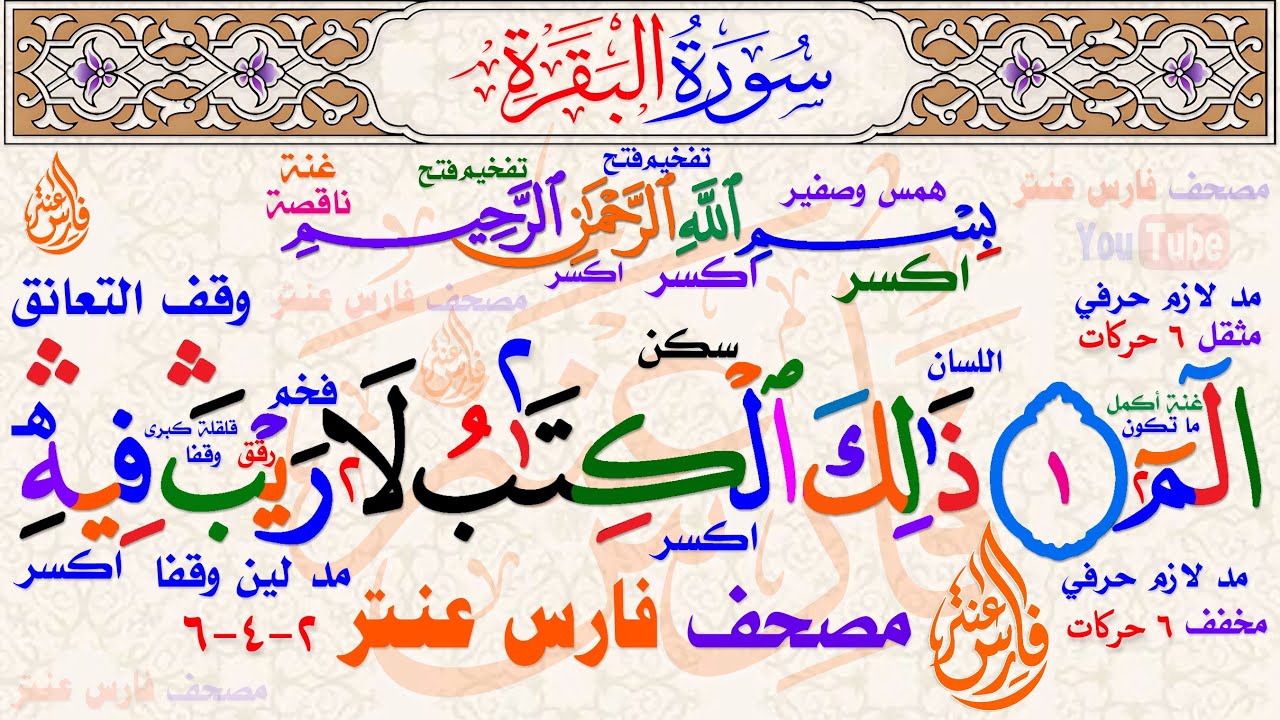 سُورَةُ البَقَرَةِ
تفخيم فتح
تفخيم فتح
غنة ناقصة
همس وصفير
مصحف فارس عنتر
YouTube
فارس عنتر
بِسْمِ ٱللَّهِ ٱلرَّحْمَٰنِ ٱلرَّحِيمِ
اكسر اكسر اكسر
وقف التعانق
مصحف فارس عنتر
مد لازم حرفي
مثقل ٦ حركات
سكن
اللسان
غنة أكمل
ما تكون
فخم
رقق
قلقلة كبرى
وقفا
الٓمٓ ١ ذَٰلِكَ ٱلْكِتَٰبُ لَا رَيْبَ ۛ فِيهِ ۛ هـ
٢ ١ ٢ ١ ٢
اكسر
اكسر
مد لين وقفا
٢-٤-٦
مد لازم حرفي
مخفف ٦ حركات
مصحف فارس عنتر
فارس عنتر
مصحف فارس عنتر